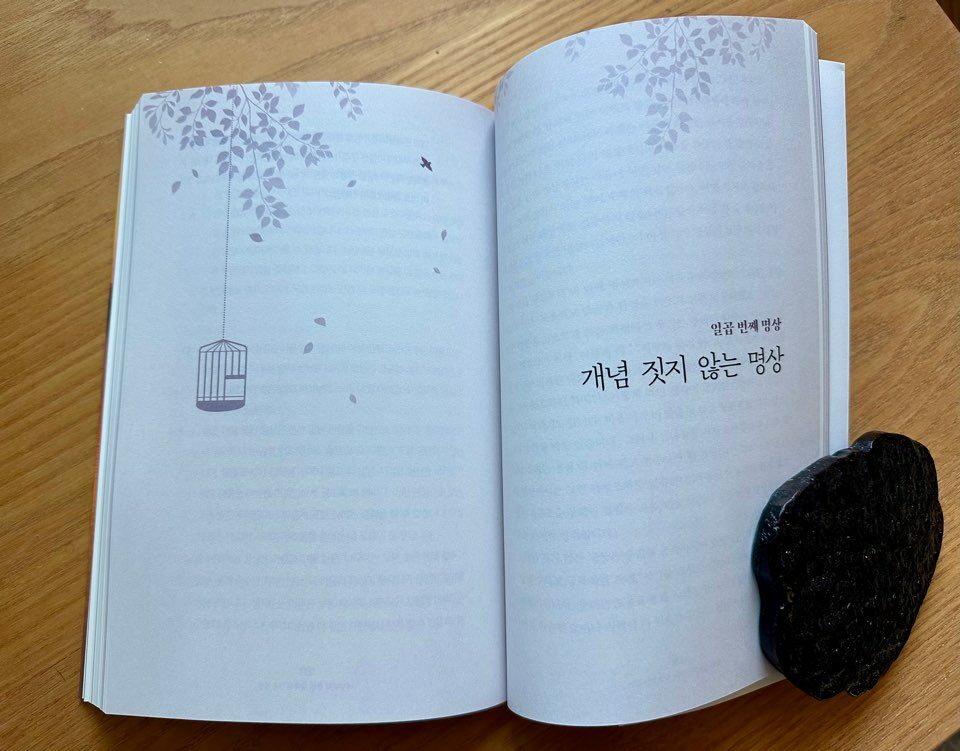 일곱 번째 명상
개념 짓지 않는 명상